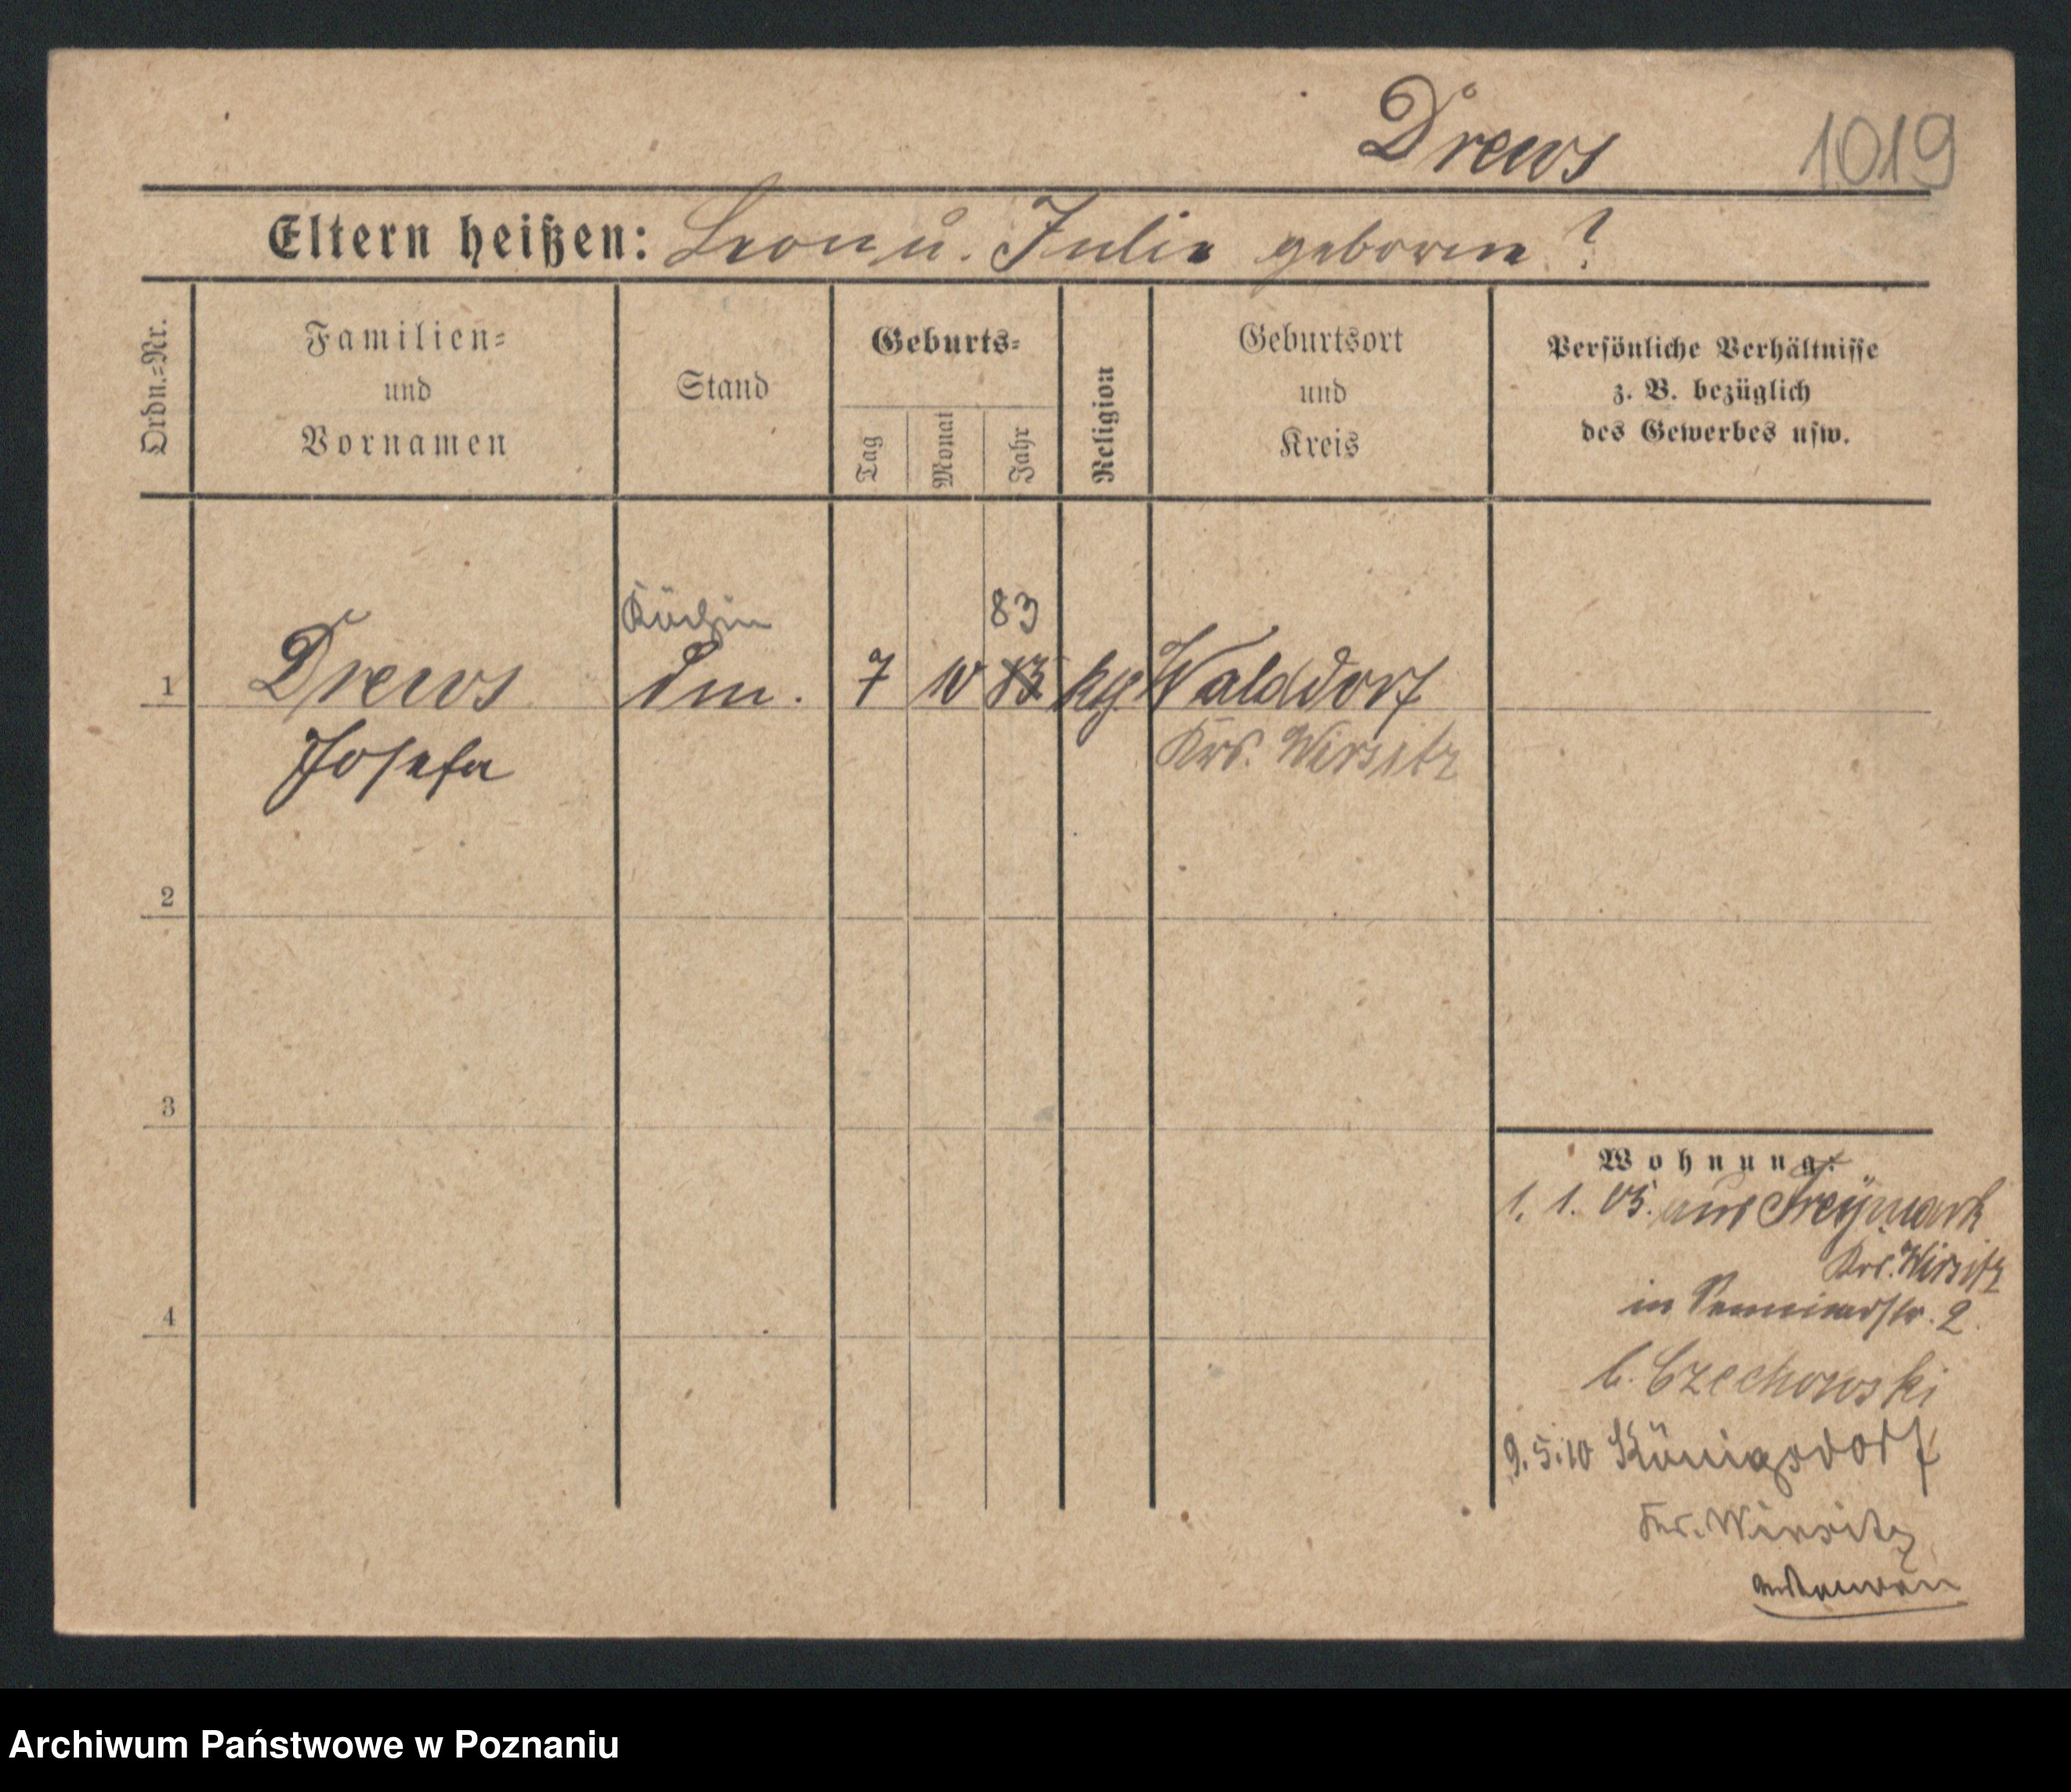 Drews 1019
Eltern heißen: Leon u. Julie geborene ?
Ordn.=Nr.
Familien=
und
Vornamen
Stand
Geburts=
Tag
Monat
Jahr
Religion
Geburtsort
und
Kreis
Persönliche Verhältnisse
z. B. bezüglich
des Gewerbes usw.
Köchin 83
1 Drews Dm. 7 10 83 ktg Walddorf
Josefa Krs. Wirsitz
2
3
4
Wohnung:
1. 1. 05. aus Freymark
Krs. Wirsitz
in Seminarstr. 2
b. Czechowski
9.5.10 Königsdorf
Krs. Wirsitz
Archiwum Państwowe w Poznaniu